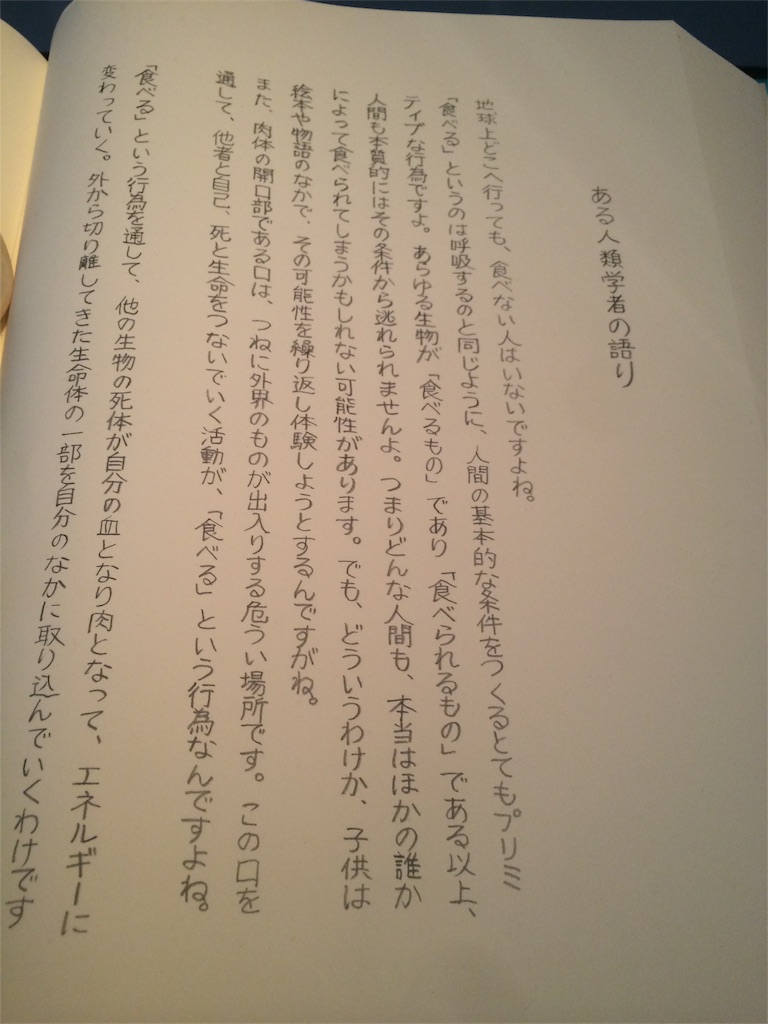 ある人類学者の語り
地球上どこへ行っても、食べない人はいないですよね。
「食べる」というのは呼吸するのと同じように、人間の基本的な条件をつくるとてもプリミ
ティブな行為ですよ。あらゆる生物が「食べるもの」であり「食べられるもの」である以上、
人間も本質的にはその条件から逃れられませんよ。つまりどんな人間も、本当はほかの誰か
によって食べられてしまうかもしれない可能性があります。でも、どういうわけか、子供は
絵本や物語のなかで、その可能性を繰り返し体験しようとするんですがね。
また、肉体の開口部である口は、つねに外界のものが出入りする危うい場所です。この口を
通して、他者と自己、死と生命をつないでいく活動が、「食べる」という行為なんですよね。
「食べる」という行為を通して、他の生物の死体が自分の血となり肉となって、エネルギーに
変わっていく。外から切り離してきた生命体の一部を自分のなかに取り込んでいくわけです